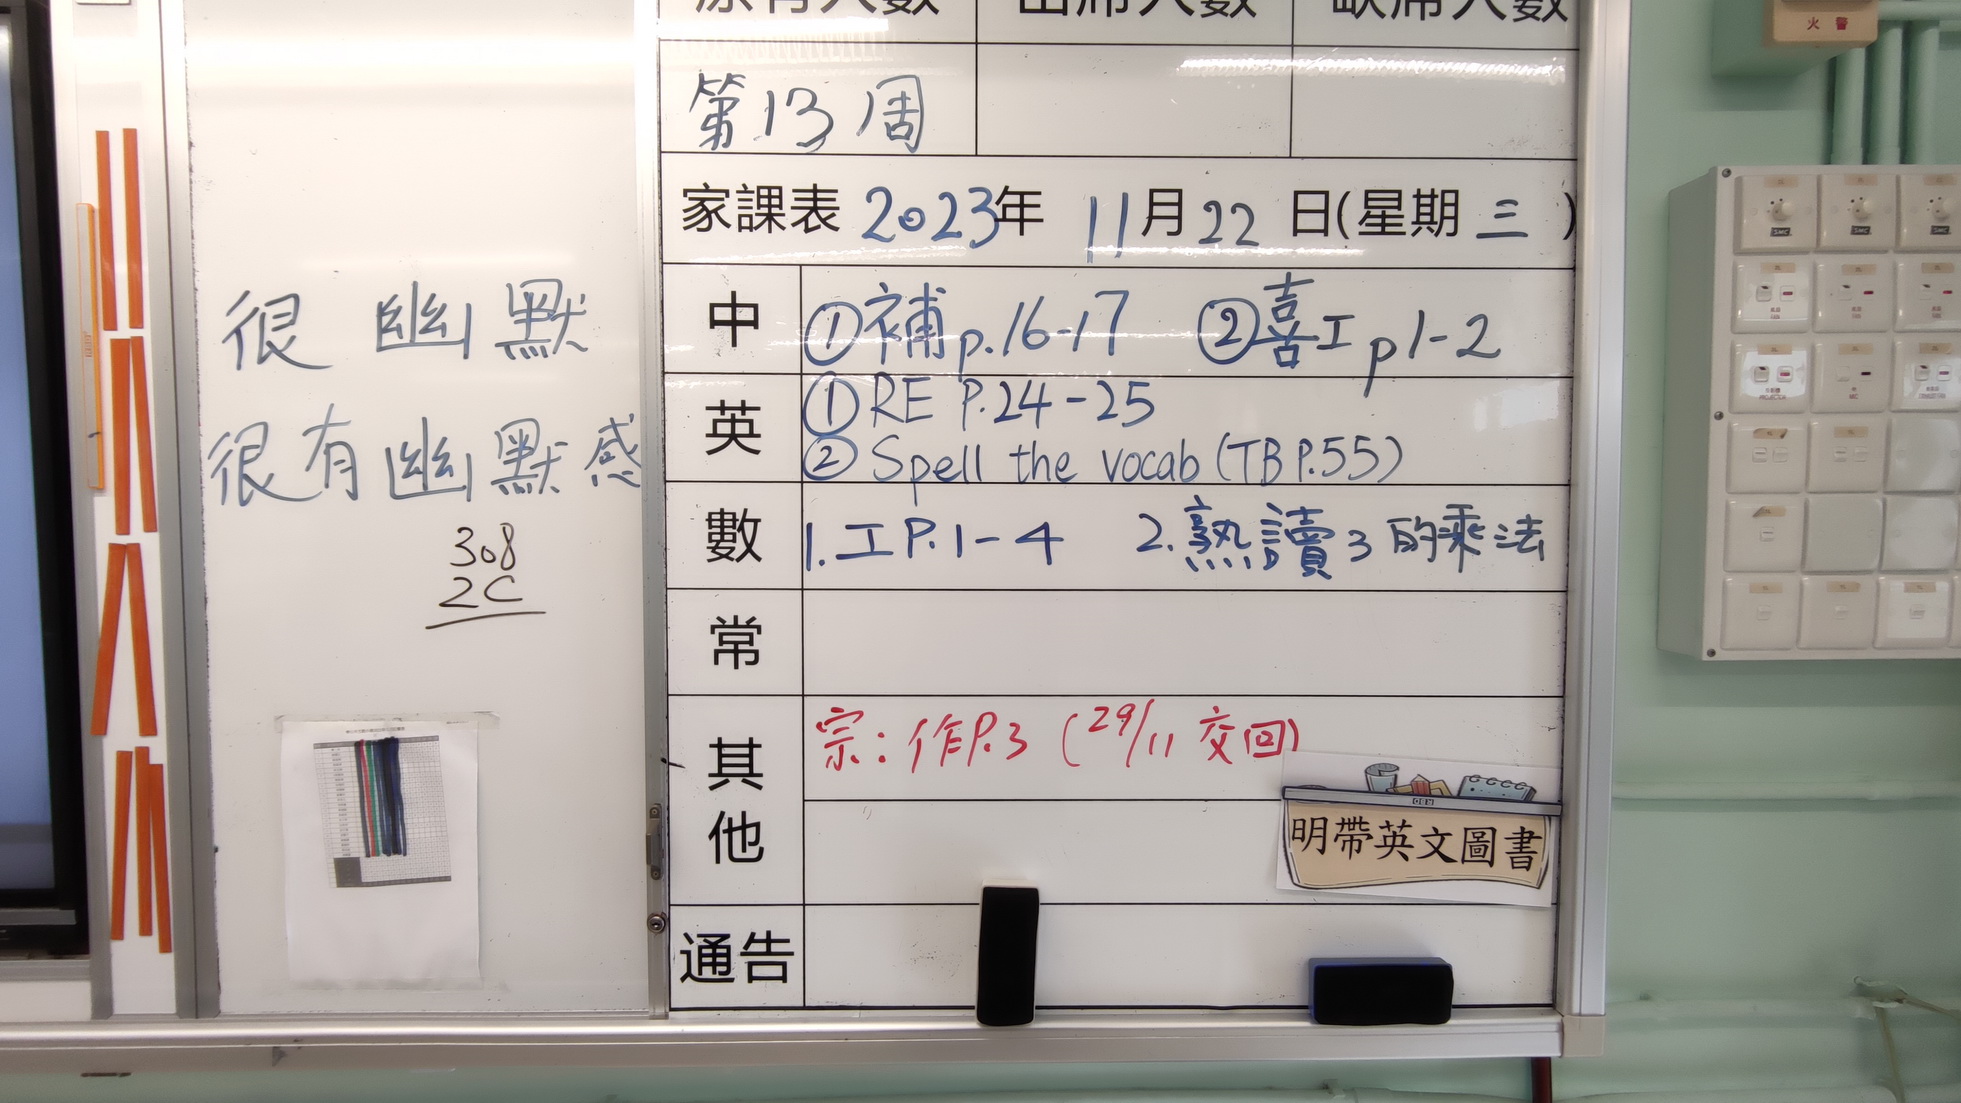 原有人數 出席人數 缺席人數
第13周
家課表 2023年 11月22日(星期三)
中 ①補p.16-17 ②喜工p1-2
英 ①RE P.24-25
②Spell the vocab (TB P.55)
數 1.工P.1-4 2.熟讀3的乘法
常
其他 宗:作P.3 (29/11交回)
明帶英文圖書
通告
很幽默
很有幽默感
308
2C
火警